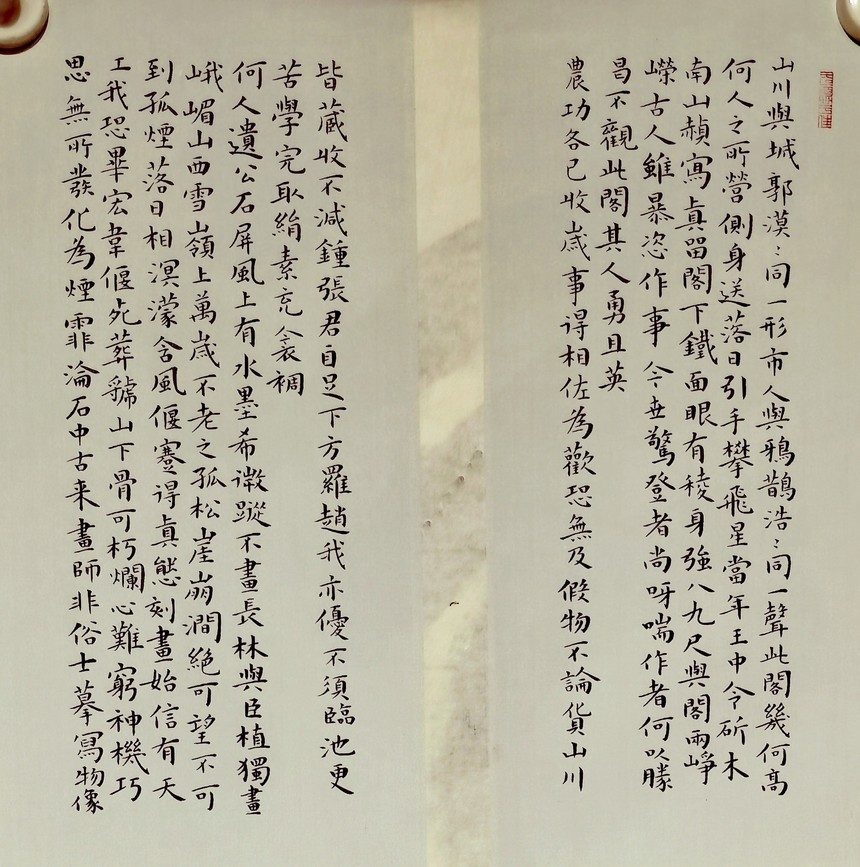 山川與城郭漠〻同一形市人與鴉鵲浩〻同一聲此閣幾何高
何人之所營側身送落日引手攀飛星當年王中令斫木
南山赬寫真留閣下鐵面眼有稜身強八九尺與閣兩崢
嶸古人雖暴恣作事今世驚登者尚呀喘作者何以勝
曷不觀此閣其人勇且英
農功各已收歲事得相佐為歡恐無及假物不論貨山川
皆藏收不減鍾張君自足下方羅趙我亦優不須臨池更
苦學完取絹素充衾裯
何人遺公石屏風上有水墨希微蹤不畫長林與臣植獨畫
峨嵋山西雪嶺上萬歲不老之孤松崖崩澗絕可望不可
到孤煙落日相溟濛含風偃蹇得真態刻畫始信有天
工我恐畢宏韋偃死葬虢山下骨可朽爛心難窮神機巧
思無所發化為煙霏淪石中古来畫師非俗士摹寫物像